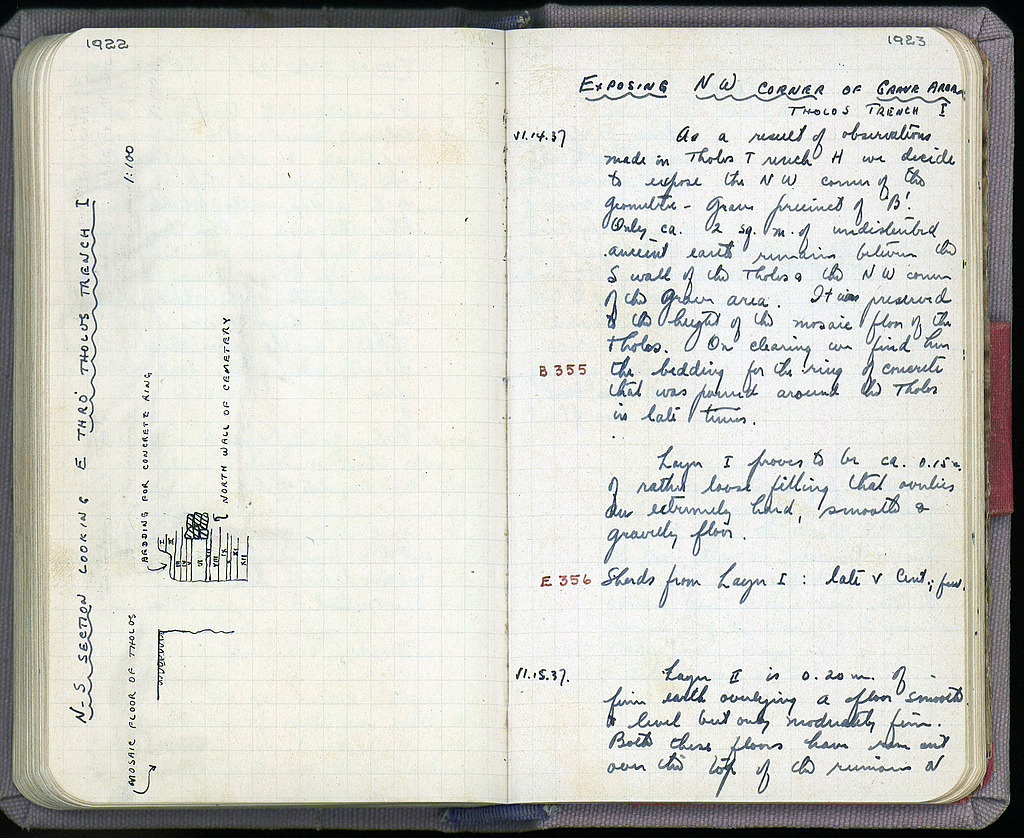 1922
N-S SECTION LOOKING E THRO' THOLOS TRENCH I
1:100
MOSAIC FLOOR OF THOLOS
BEDDING FOR CONCRETE RING
NORTH WALL OF CEMETERY
I II III IV V VI VII VIII IX X XI XII
1923
EXPOSING NW CORNER OF GRAVE AREA
THOLOS TRENCH I
VI.14.37
As a result of observations
made in Tholos Trench H we decide
to expose the NW corner of the
Geometric - Grave precinct of 'B'.
Only ca. 2 sq. m. of undisturbed
ancient earth remains between the
S wall of the Tholos & the NW corner
of the Grave area. It was preserved
to the height of the mosaic floor of the
Tholos. On clearing we find here
B 355
the bedding for the ring of concrete
that was poured around the Tholos
in late times.
Layer I proves to be ca. 0.15 m.
of rather loose filling that overlies
an extremely hard, smooth &
gravelly floor.
E 356
Sherds from Layer I : late V Cent.; few.
VI.15.37.
Layer II is 0.20 m. of
firm earth overlying a floor smooth
& level but only moderately firm.
Both these floors have run out
over the top of the remains of